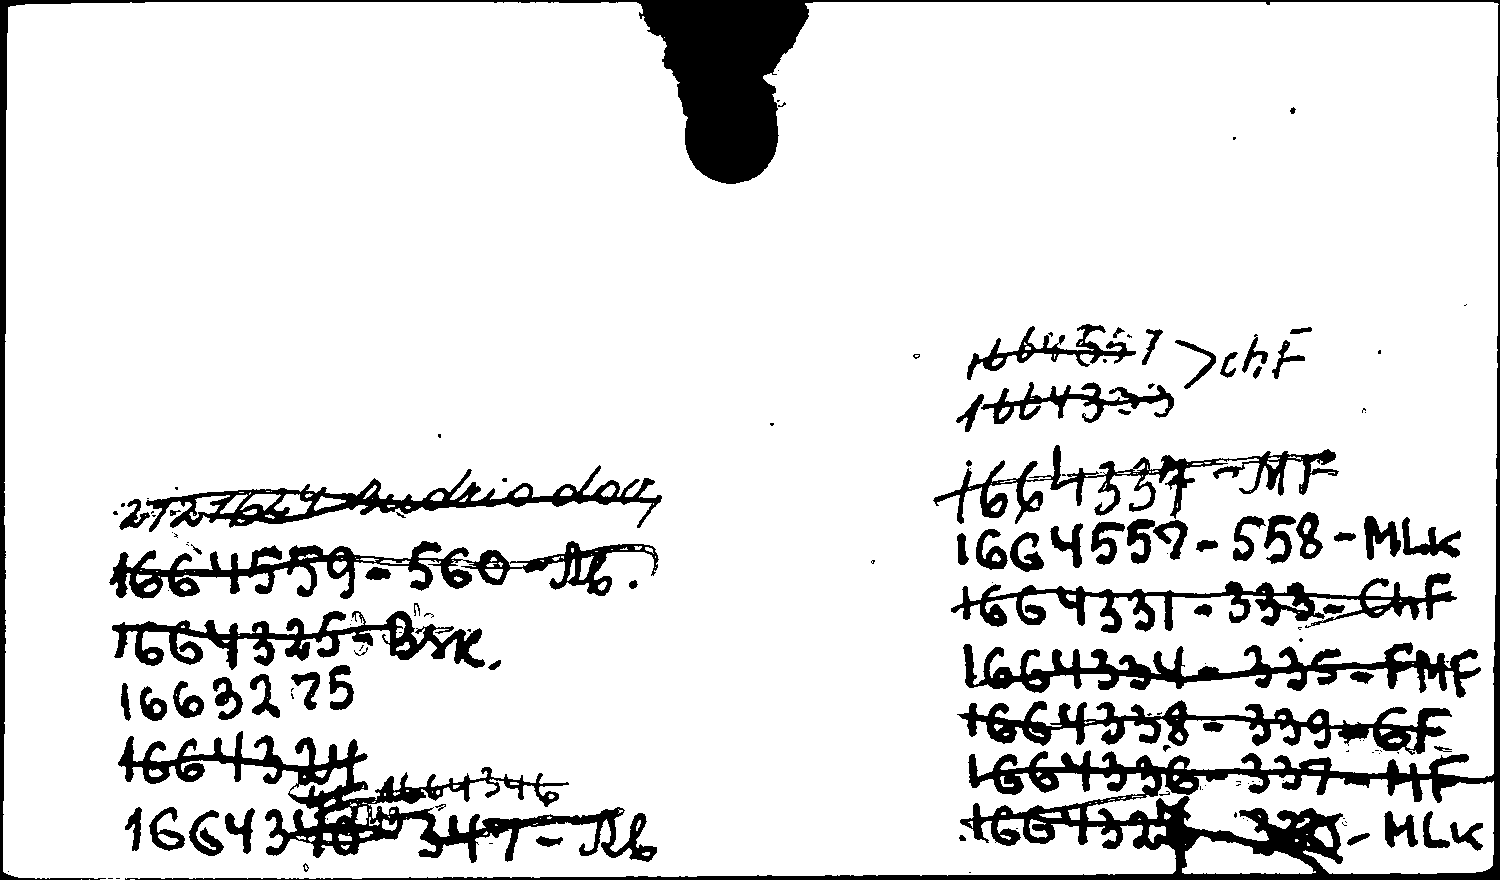 1664559-560-Ab.
1664325-Bsk.
1663275
1664324
1664346
16643 347-Ab
1664557 > chF
1664333
1664337-MF
1664557-558-MLk
1664331-333-ChF
1664334-335-FMF
1664338-339-GF
1664336-337-MF
166432 - MLk